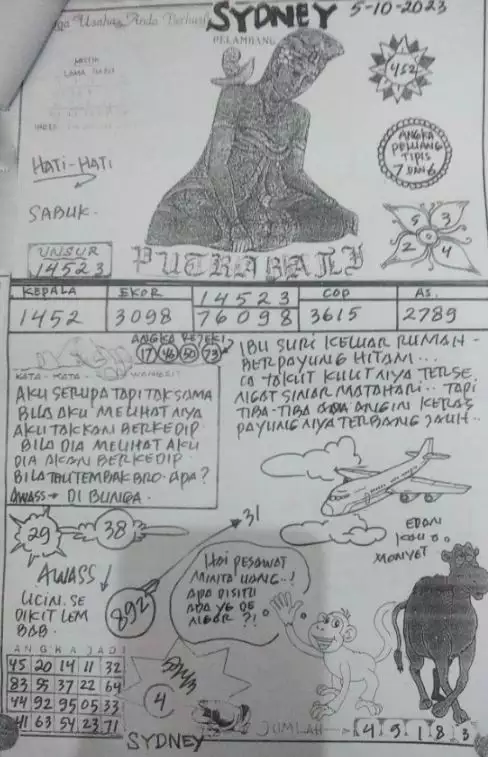 Usaha Anda Berhasil
SYDNEY
5-10-2023
PELAMBANG
452
ANGKA
PELUANG
TIPIS
7 DAN 6
HATI-HATI
SABUK.
5 3
2 4
UNSUR
14523
PUTRA BALI
KEPALA EKOR 14523 COP AS.
1452 3098 76098 3615 2789
ANGKA REJEKI
17 46 50 73
KATA-KATA WANGSIT
AKU SERUPA TAPI TAK SAMA
BILA AKU MELIHAT NIYA
AKU TAK KAN BERKEDIP
BILA DIA MELIHAT AKU
DIA AKAN BERKEDIP
BILA TAU TEMBAK BRO. APA?
AWASS→ DI BUNGA.
IBU SURI KELUAR RUMAH-
BERPAYUNG HITAM...
TAKUT KULIT NIYA TERSE
NGAT SINAR MATAHARI.. TAPI
TIBA-TIBA ADA ANGIN KERAS
PAYUNG NIYA TERBANG JAUH..
29 38
31
AWASS
UCIN. SE
DIKIT LEM
BAB.
892
HAI PESAWAT
MINTA UANG..!
ADA DISITU
ADA YG DE
NGAR ?!
EDAN
KAU..
MONYET
ANGKA JADI
45 20 14 11 32
83 55 37 22 64
44 92 95 05 33
41 63 54 23 71
5243
4
JUMLAH 4 9 1 8 3
SYDNEY